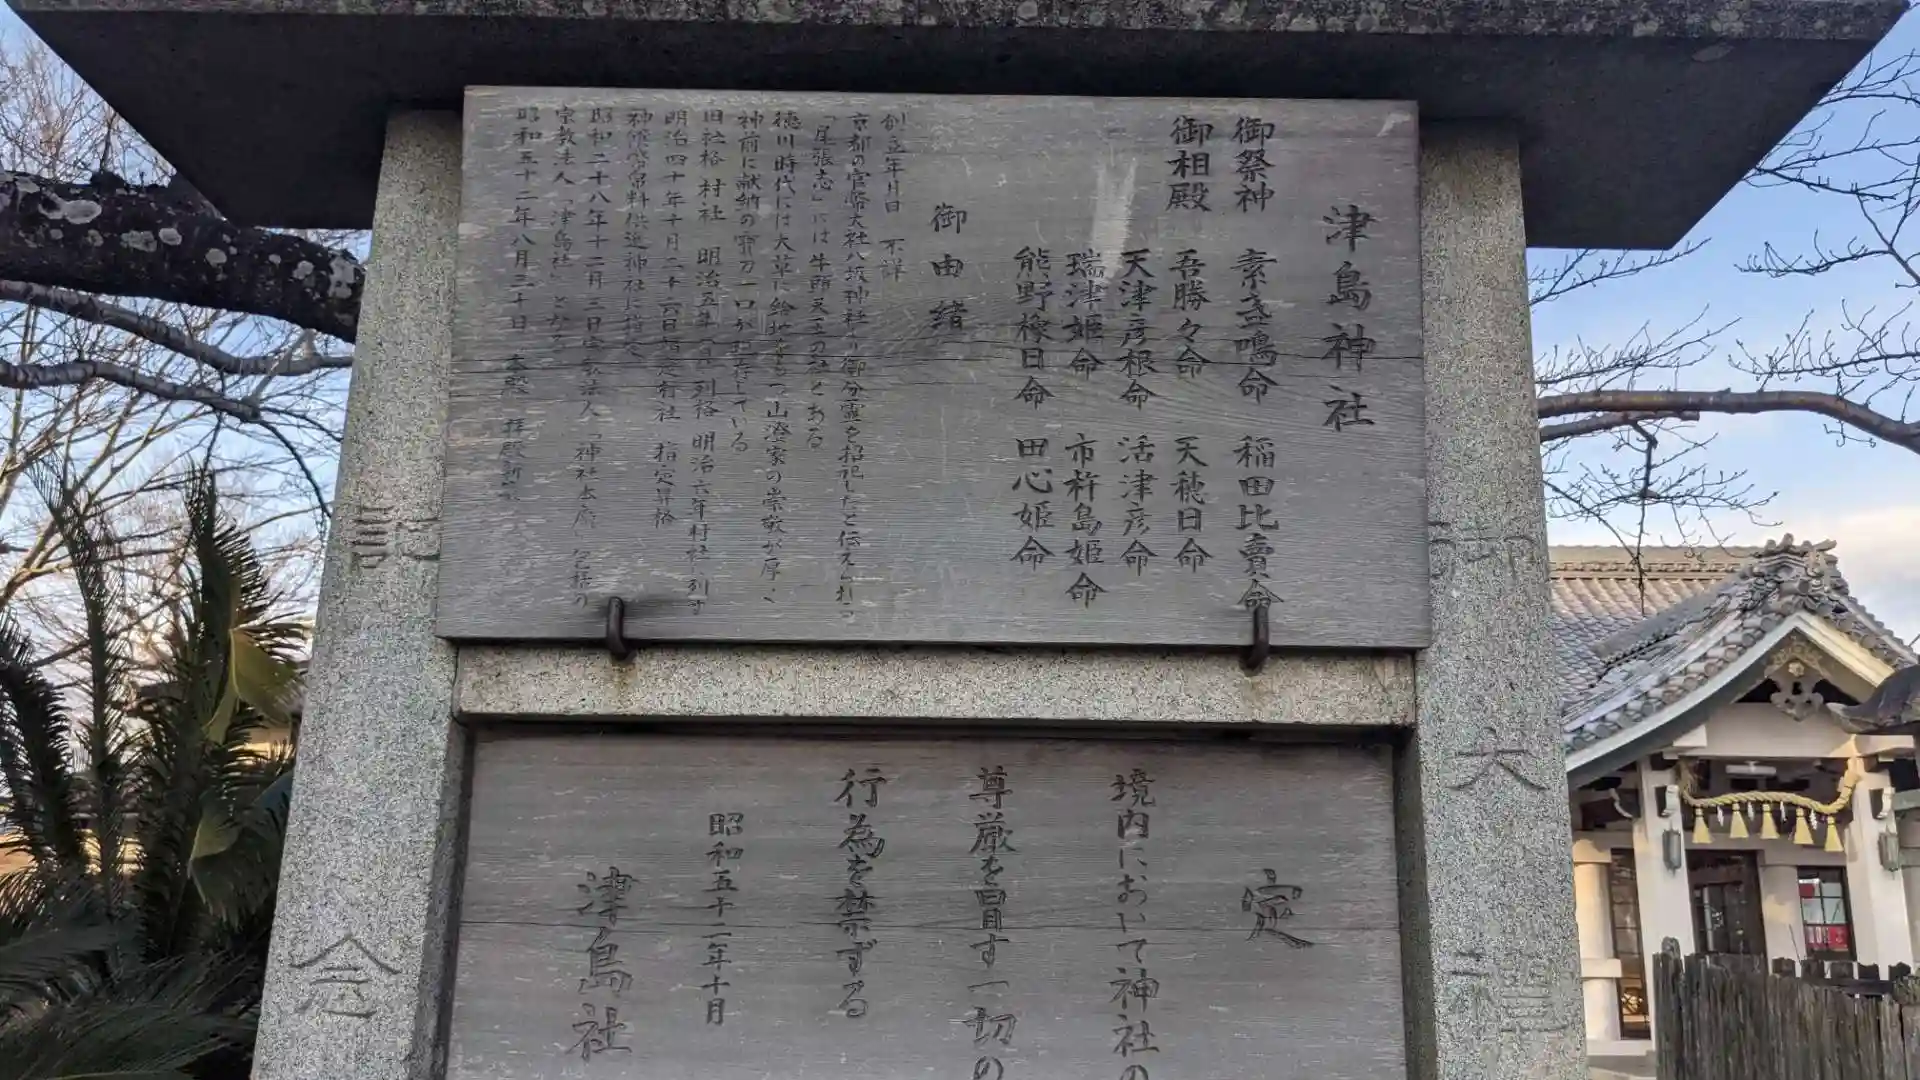 津島神社
御祭神 素盞鳴命 稲田比賣命
御相殿 吾勝々命 天穂日命
天津彦根命 活津彦命
瑞津姫命 市杵島姫命
熊野櫲日命 田心姫命
御由緒
創立年月日 不詳
京都の官幣大社八坂神社より御分霊を招祀したと伝えられ
「尾張志」には牛頭天王の社とある
徳川時代には大草に給地をもつ山澄家の崇敬が厚く
神前に献納の宝刀一口が現存している
旧社格 村社 明治五年 列格 明治六年村社に列す
明治四十年十月二十六日指定村社 指定昇格
神饌幣帛料供進神社に指定
昭和二十八年十二月三日宗教法人「神社本庁」包括の
宗教法人「津島社」となる
昭和五十二年八月三十日 本殿 拝殿新
定
境内において神社の
尊厳を冒す一切の
行為を禁ずる
昭和五十二年十月
津島社
御大禮
記念